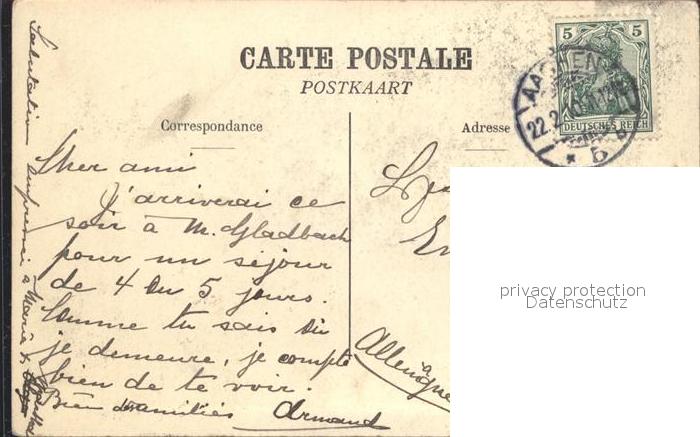 CARTE POSTALE
POSTKAART
Correspondance
Adresse
5 5
DEUTSCHES REICH
AACHEN
22.2
* 5
Cher ami
J'arriverai ce
soir à M. Gladbach
pour un séjour
de 4 ou 5 jours.
Comme tu sais où
je demeure, je compte
bien de te voir.
Bien
Armand
à Marie &
Allemagne
privacy protection
Datenschutz